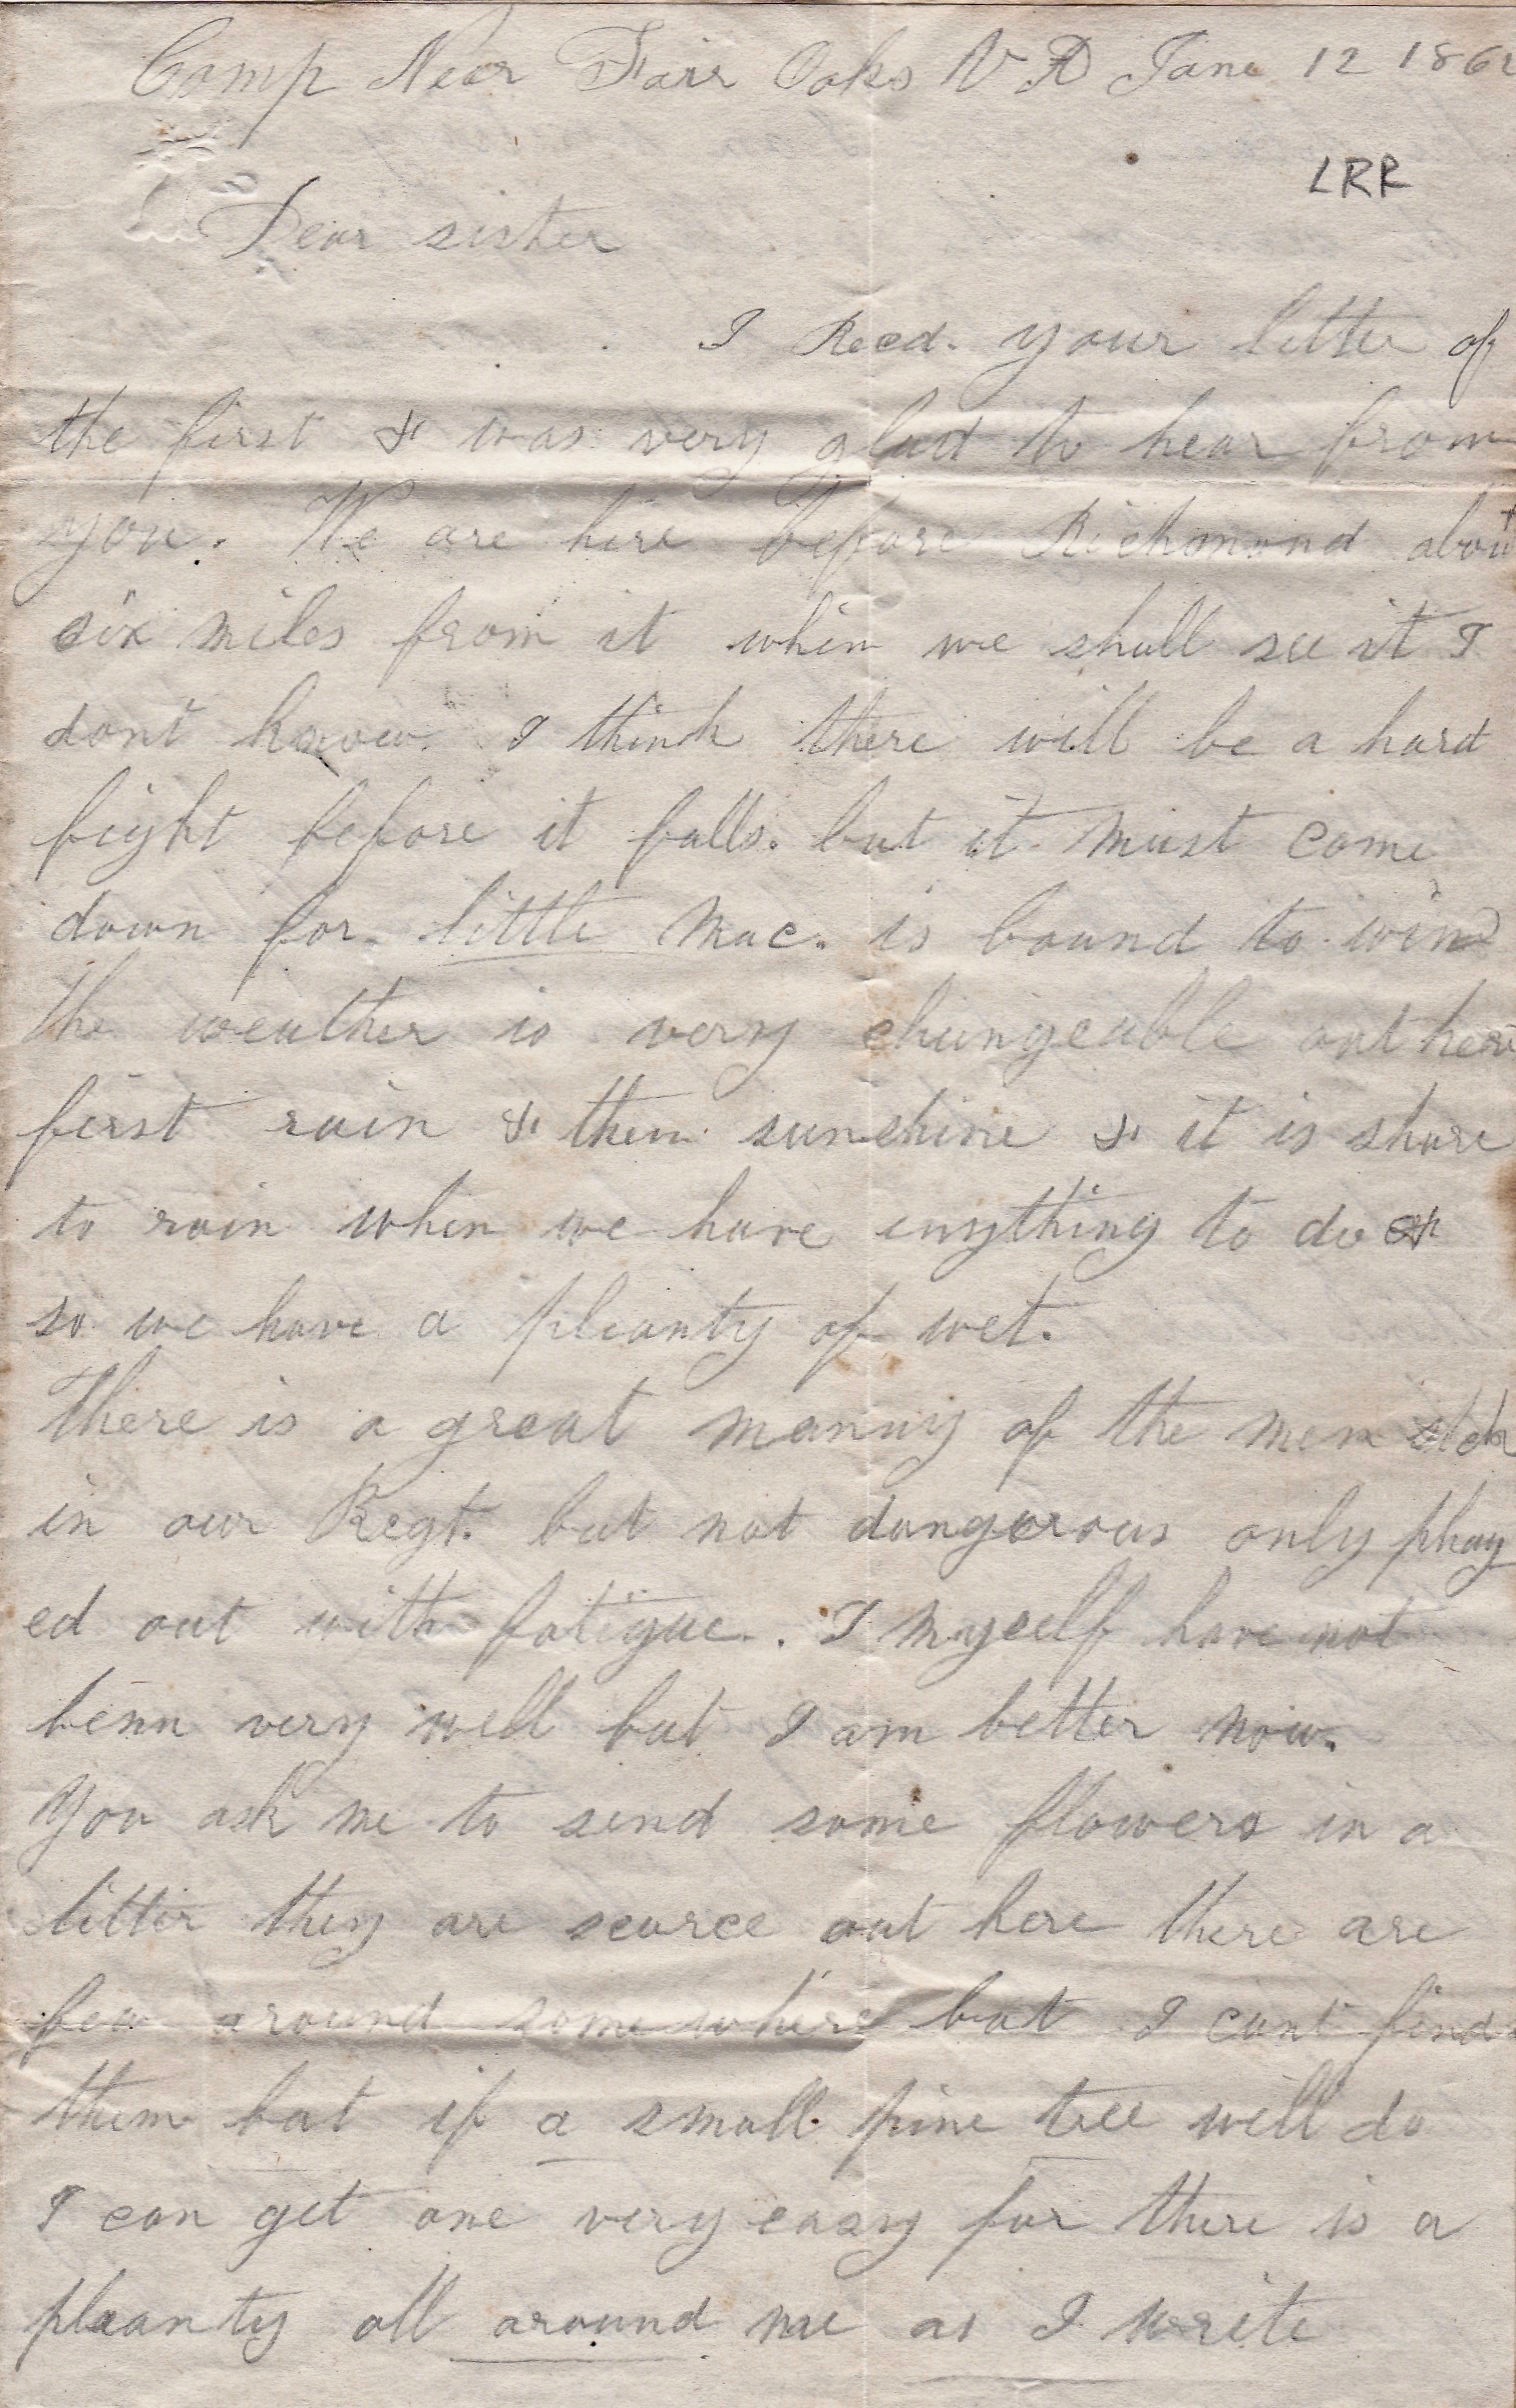 Camp Near Fair Oaks VA June 12 1862
LRR
Dear sister
I Recd. your letter of
the first & was very glad to hear from
you. We are here before Richmond about
six miles from it when we shall see it I
dont know. I think there will be a hard
fight before it falls. but it must come
down for little Mac. is bound to win
the weather is very changeable out here
first rain & then sunshine & it is shure
to rain when we have enything to do &
so we have a pleanty of wet.
There is a great manny of the men sick
in our Regt. but not dangerous only play
ed out with fatigue. I myself have not
benn very well but I am better now.
You ask me to send some flowers in a
letter they are scarce out here there are
few around somewhere but I cant find
them but if a small pine tree will do
I can get one very easy for there is a
pleanty all around me as I write